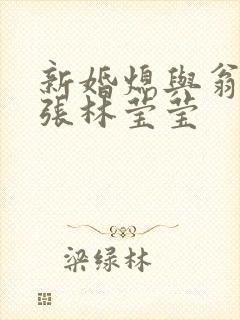 新婚熄與翁
張林莹莹
梁绿林